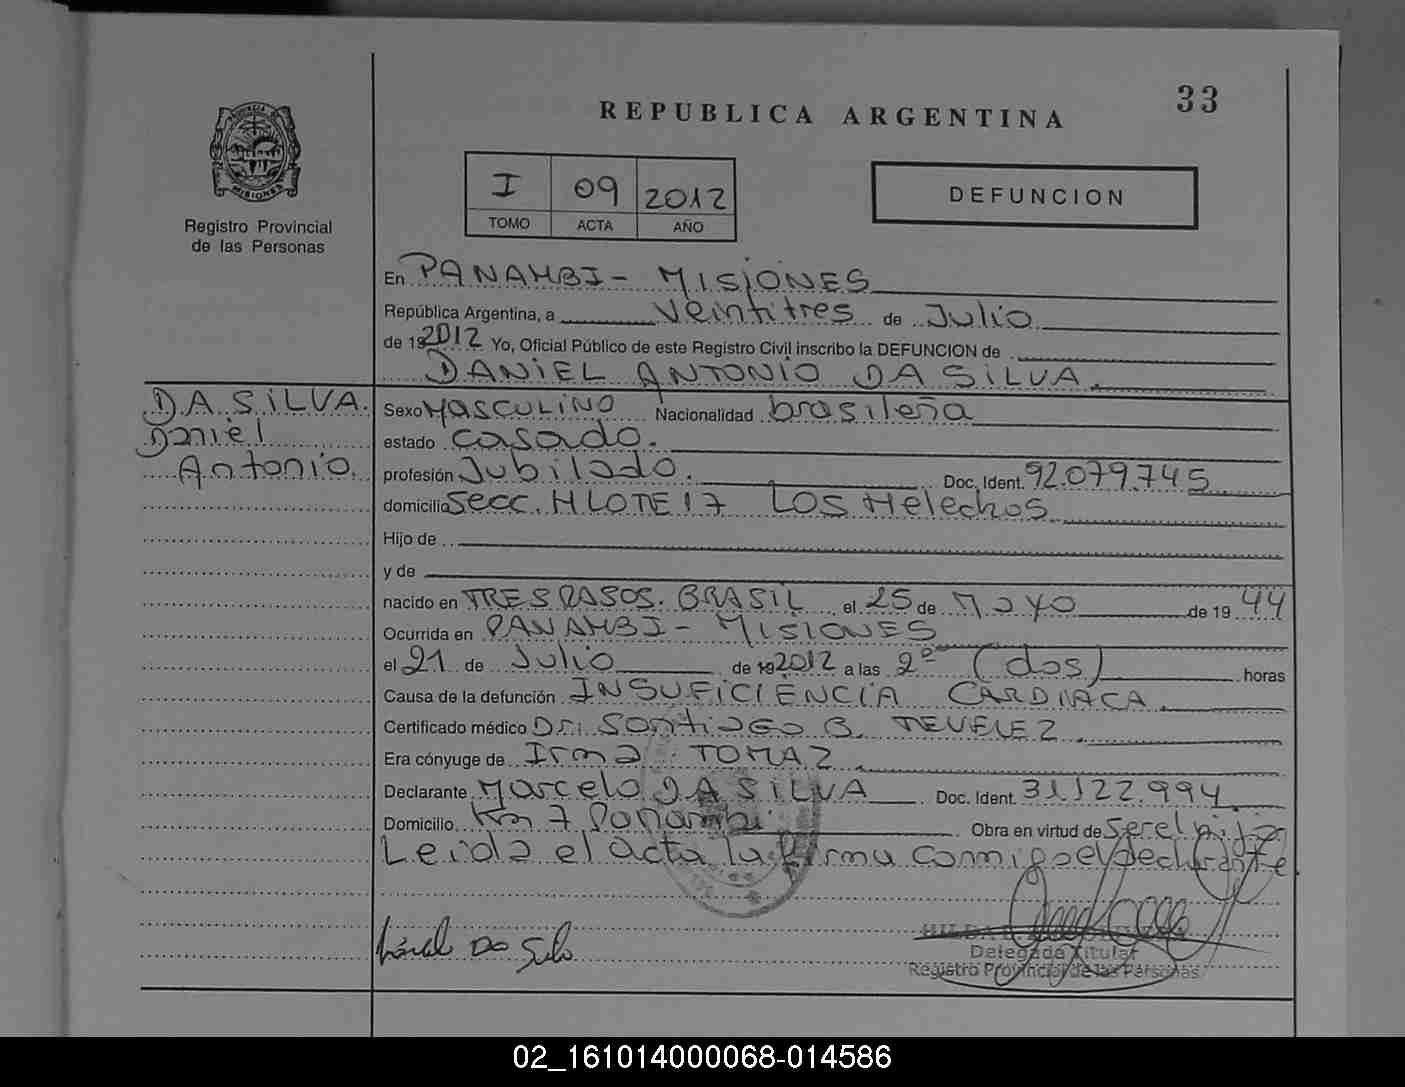 33
REPUBLICA ARGENTINA
PROVINCIA DE
MISIONES
Registro Provincial
de las Personas
I 09 2012
TOMO ACTA AÑO
DEFUNCION
En PANAMBI - MISIONES
República Argentina, a Veintitres de Julio
de 19 2012 Yo, Oficial Público de este Registro Civil inscribo la DEFUNCION de
DANIEL ANTONIO DA SILVA.
DA SILVA.
Daniel
Antonio.
Sexo MASCULINO Nacionalidad brasileña
estado casado.
profesión Jubilado. Doc. Ident. 92.079.745
domicilio Secc. H LOTE 17 Los Helechos
Hijo de
y de
nacido en TRES PASOS. BRASIL el 25 de Mayo de 19 44
Ocurrida en PANAMBI - MISIONES
el 21 de Julio de 19 2012 a las 2º (dos) horas
Causa de la defunción INSUFICIENCIA CARDIACA.
Certificado médico Dr. Santiago B. TEVELEZ.
Era cónyuge de Irma TOMAZ
Declarante Marcelo DA SILVA Doc. Ident. 31.122.994.
Domicilio Km 7 Panambi Obra en virtud de ser el hijo
Leida el acta la firma conmigo el declarante
Da Silva
Delegada Titular
Registro Provincial de las Personas
02_161014000068-014586